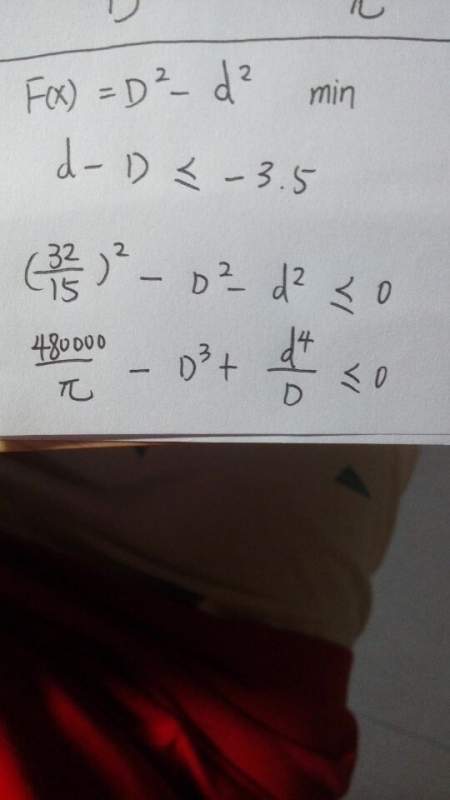 F(x) = D² - d² min
d - D ≤ -3.5
(32/15)² - D² - d² ≤ 0
480000/π - D³ + d⁴/D ≤ 0